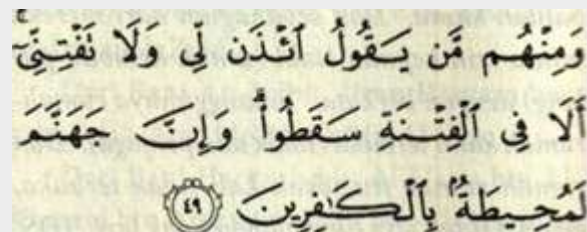 وَمِنْهُم مَّن يَقُولُ ائْذَن لِّي وَلَا تَفْتِنِّيٓ
أَلَا فِي ٱلْفِتْنَةِ سَقَطُوا۟ وَإِنَّ جَهَنَّمَ
لَمُحِيطَةٌۢ بِٱلْكَٰفِرِينَ ٤٩